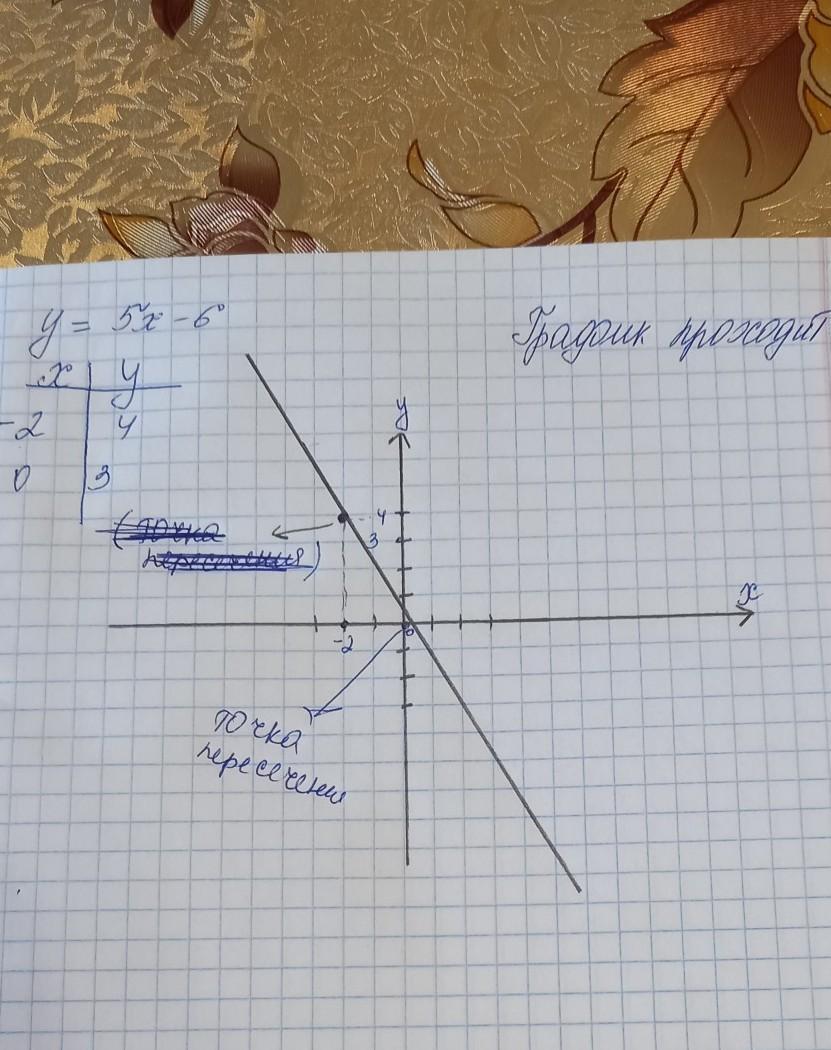 y = 5x - 6
График проходит
x y
-2 4
0 3
y
4
3
(точка
пересечения)
x
-2
0
точка
пересечени